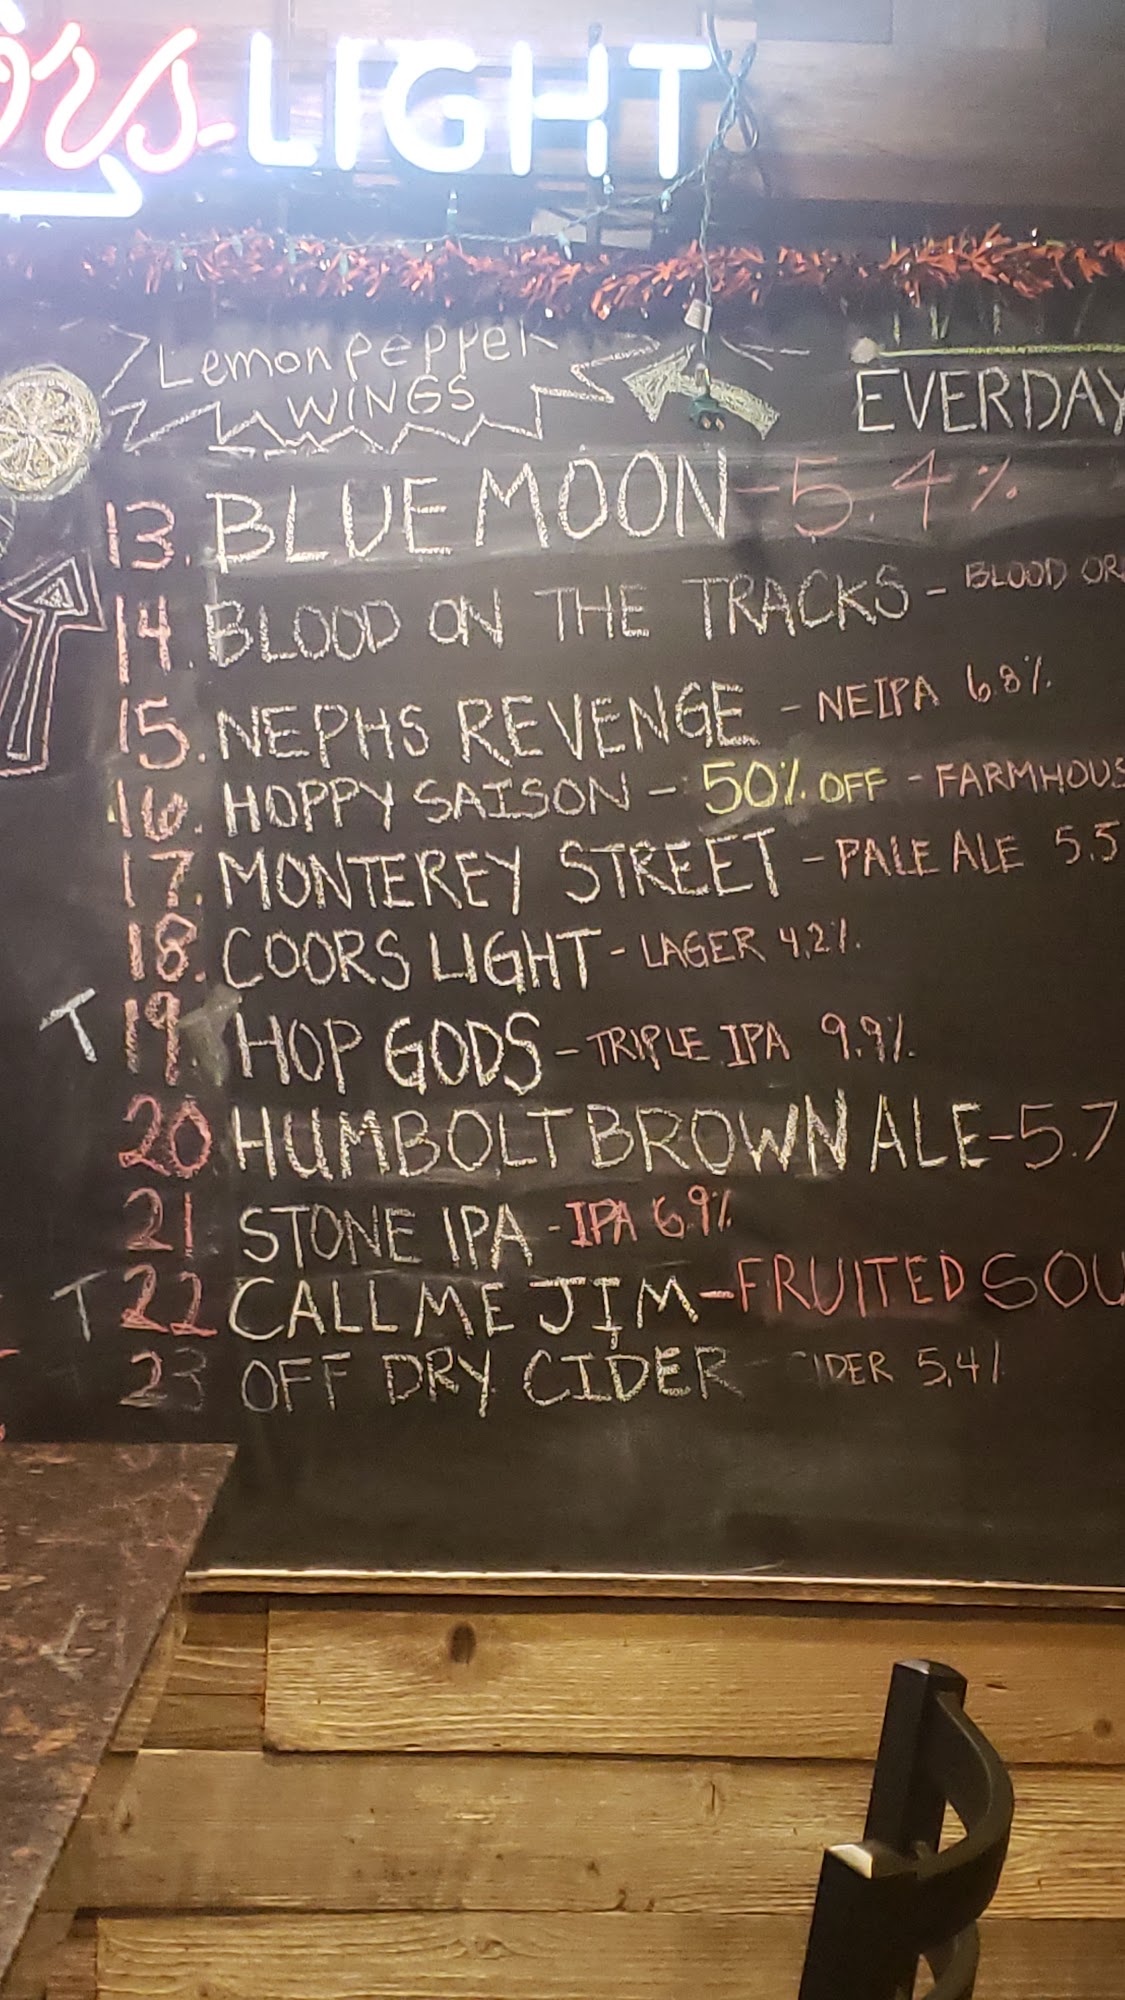 LIGHT
Lemon Pepper
WINGS
EVERDAY
13. BLUE MOON - 5.4%
14. BLOOD ON THE TRACKS - BLOOD OR
15. NEPHS REVENGE - NEIPA 6.8%
16. HOPPY SAISON - 50% OFF - FARMHOUS
17. MONTEREY STREET - PALE ALE 5.5
18. COORS LIGHT - LAGER 4.2%
T 19 HOP GODS - TRIPLE IPA 9.9%
20 HUMBOLT BROWN ALE - 5.7
21 STONE IPA - IPA 6.9%
T 22 CALL ME JIM - FRUITED SOU
23 OFF DRY CIDER - CIDER 5.4%